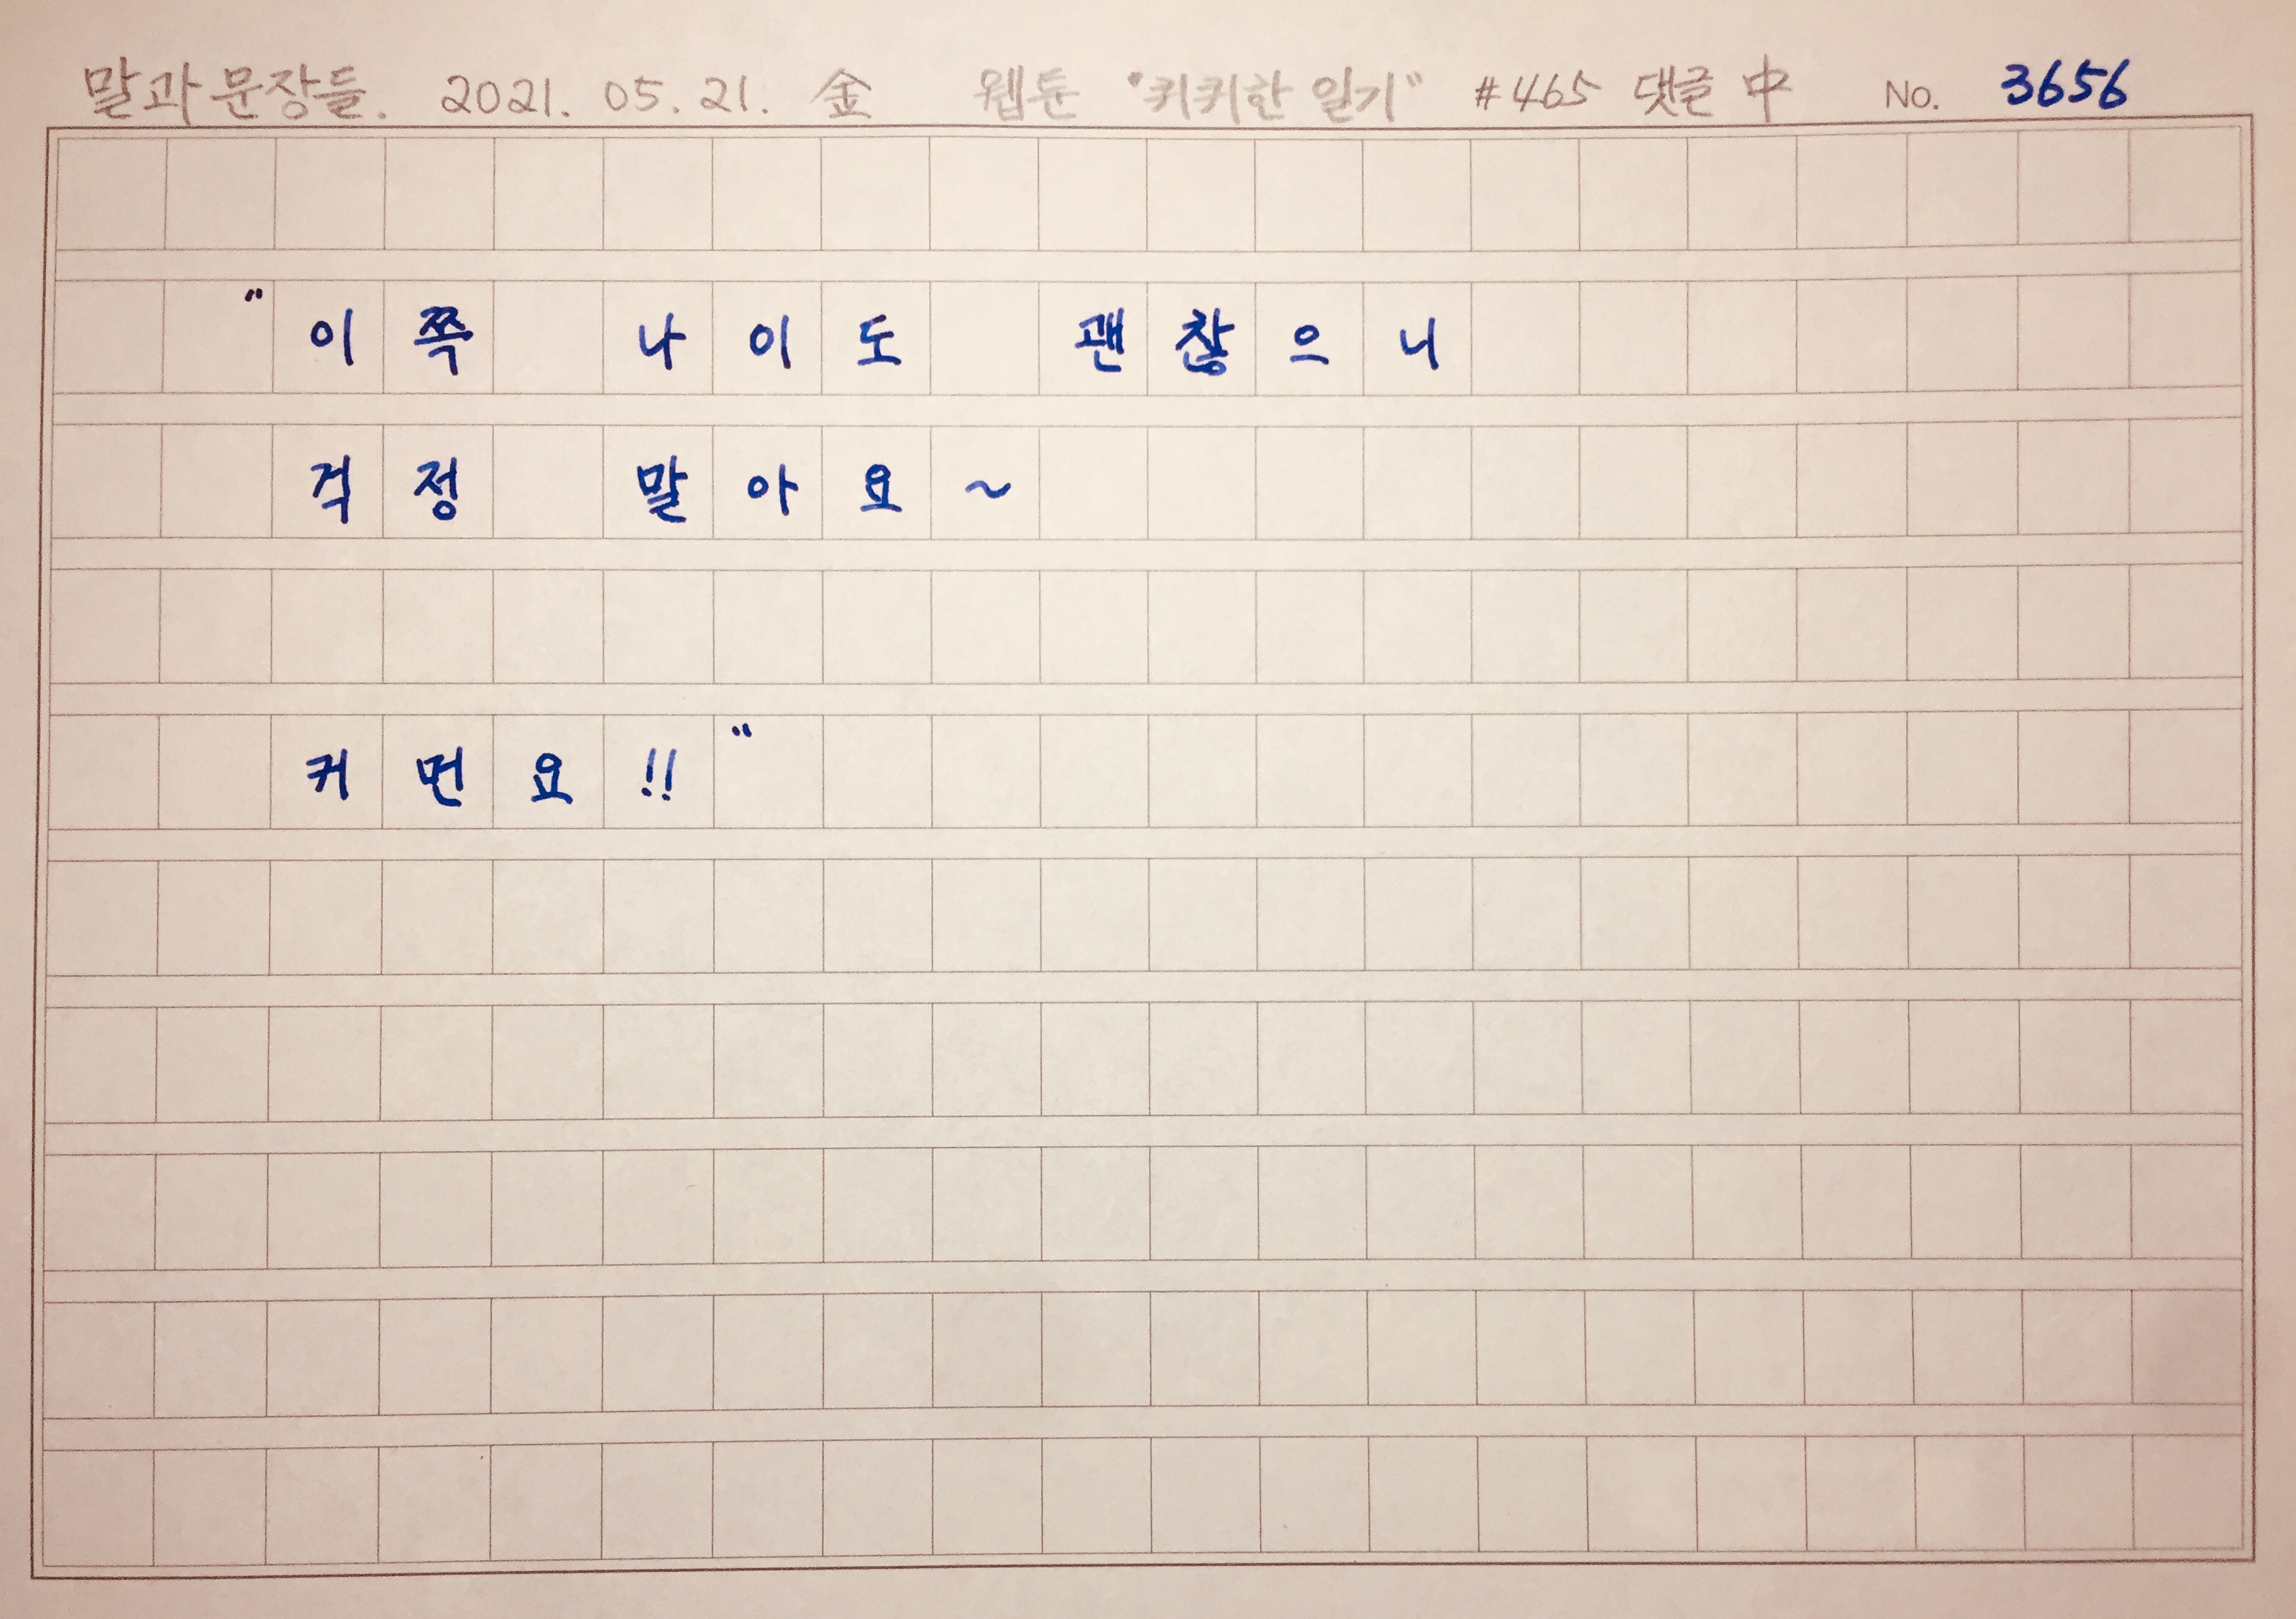 말과 문장들. 2021. 05. 21. 金 웹툰 "키키한 일기" #465 댓글 中 No. 3656
"이쪽 나이도 괜찮으니
걱정 말아요~
커먼요!!"